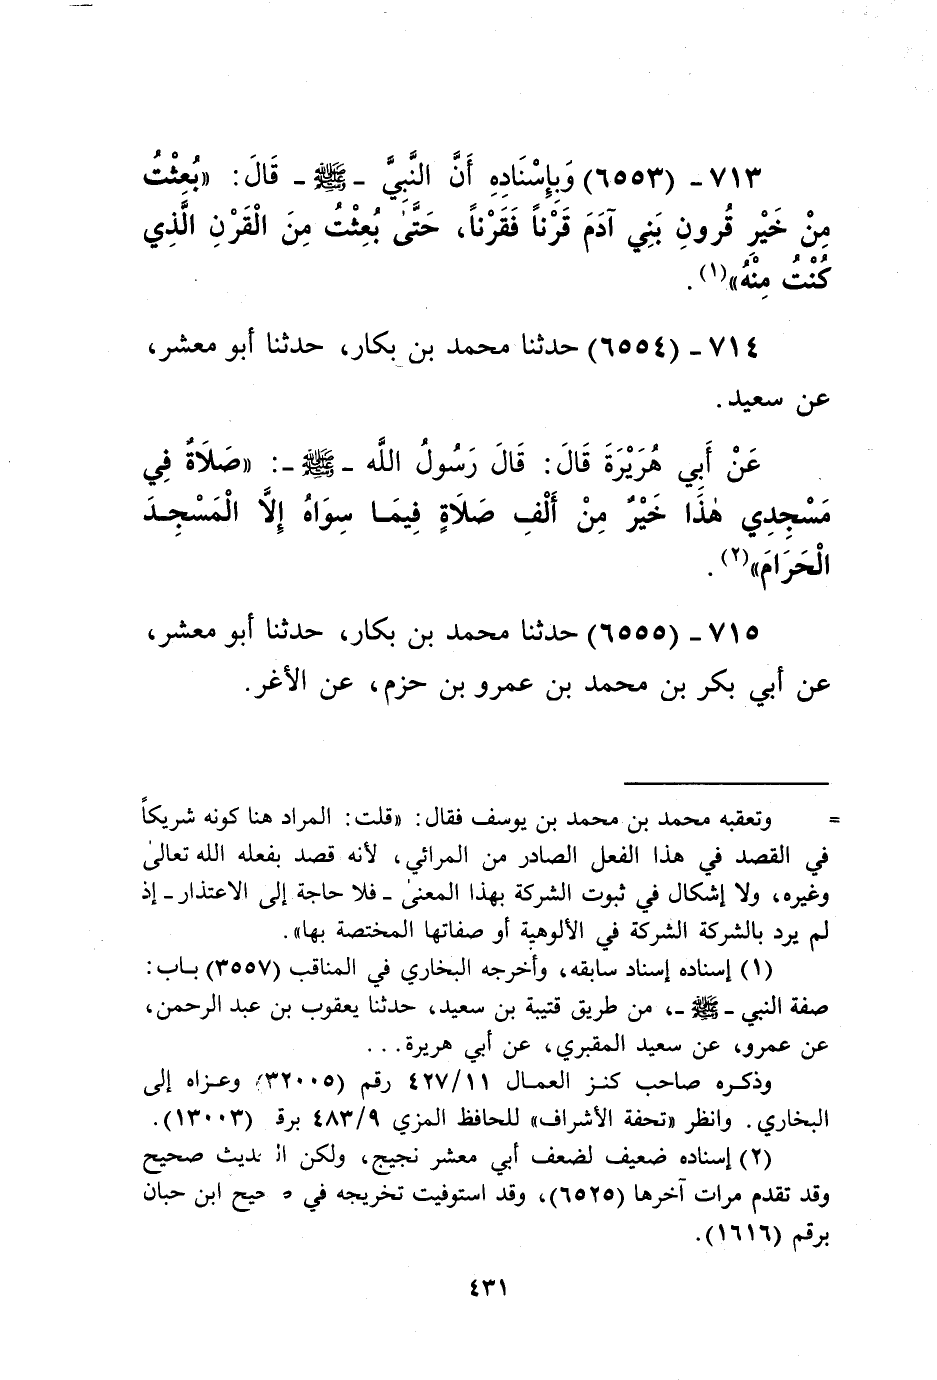 ٧١٣ - (٦٥٥٣) وَبِإِسْنَادِهِ أَنَّ النَّبِيَّ - ﷺ - قَالَ: «بُعِثْتُ
مِنْ خَيْرِ قُرونِ بَنِي آدَمَ قَرْناً فَقَرْناً، حَتَّىٰ بُعِثْتُ مِنَ الْقَرْنِ الَّذِي
كُنْتُ مِنْهُ»(١).
٧١٤ - (٦٥٥٤) حدثنا محمد بن بكار، حدثنا أبو معشر،
عن سعيد.
عَنْ أَبِي هُرَيْرَةَ قَالَ: قَالَ رَسُولُ اللَّه - ﷺ -: «صَلَاةٌ فِي
مَسْجِدِي هٰذَا خَيْرٌ مِنْ أَلْفِ صَلَاةٍ فِيمَا سِوَاهُ إِلَّا الْمَسْجِدَ
الْحَرَامَ»(٢).
٧١٥ - (٦٥٥٥) حدثنا محمد بن بكار، حدثنا أبو معشر،
عن أبي بكر بن محمد بن عمرو بن حزم، عن الأغر.
= وتعقبه محمد بن محمد بن يوسف فقال: «قلت: المراد هنا كونه شريكاً
في القصد في هذا الفعل الصادر من المرائي، لأنه قصد بفعله الله تعالىٰ
وغيره، ولا إشكال في ثبوت الشركة بهذا المعنىٰ - فلا حاجة إلى الاعتذار - إذ
لم يرد بالشركة الشركة في الألوهية أو صفاتها المختصة بها».
(١) إسناده إسناد سابقه، وأخرجه البخاري في المناقب (٣٥٥٧) باب:
صفة النبي - ﷺ -، من طريق قتيبة بن سعيد، حدثنا يعقوب بن عبد الرحمن،
عن عمرو، عن سعيد المقبري، عن أبي هريرة...
وذكره صاحب كنز العمال ٤٢٧/١١ رقم (٣٢٠٠٥) وعزاه إلى
البخاري. وانظر «تحفة الأشراف» للحافظ المزي ٤٨٣/٩ برق (١٣٠٠٣).
(٢) إسناده ضعيف لضعف أبي معشر نجيح، ولكن الحديث صحيح
وقد تقدم مرات آخرها (٦٥٢٥)، وقد استوفيت تخريجه في صحيح ابن حبان
برقم (١٦١٦).
٤٣١